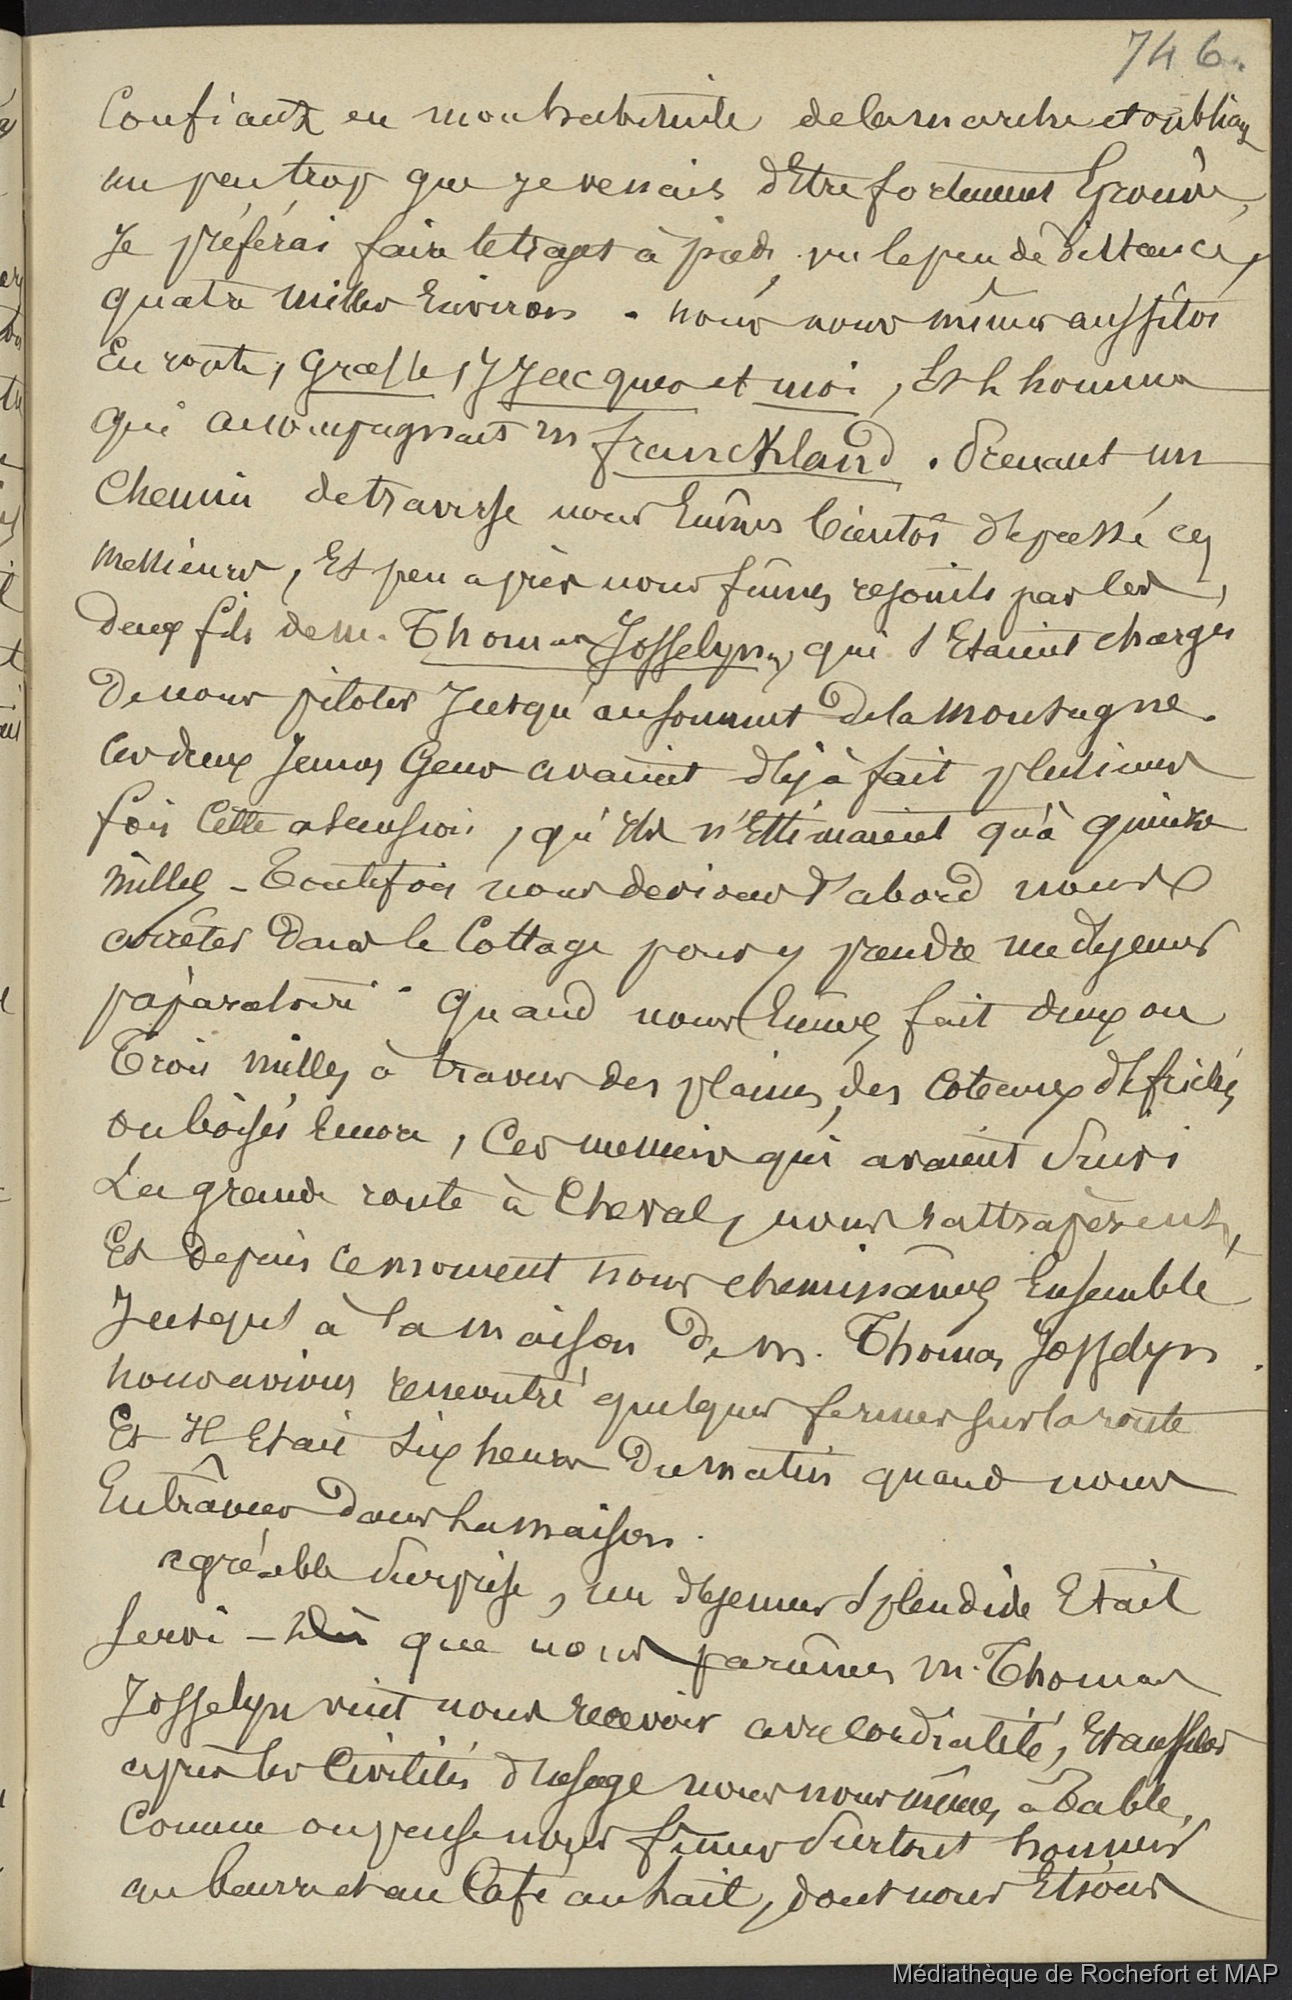 746.
Confiant en mon habitude de la marche et oubliant
un peu trop que je venais d'Etre fortement Eprouvé,
Je préférai faire le trajet à pied, vu le peu de distance,
quatre milles Environ. nous nous mîmes aussitôt
En route, Graesse, J Jacques et moi, Et l'homme
qui accompagnait m franckland. Prenant un
Chemin de traverse nous Eûmes bientôt dépassé ces
messieurs, Et peu après nous fûmes rejoints par les
deux fils de m. Thomas Josselyn, qui s'Etaient chargés
de nous piloter Jusqu'au sommet de la montagne.
Ces deux Jeunes Gens avaient déjà fait plusieurs
fois Cette ascension, qu'Ils n'Estimaient qu'à quinze
milles - Toutefois nous devions d'abord nous
arrêter dans le Cottage pour y prendre un déjeuner
préparatoire. Quand nous Eûmes fait deux ou
Trois milles à travers des plaines, des Coteaux défrichés
ou boisés Encore, Ces messieurs qui avaient suivi
La grande route à Cheval, nous rattrapèrent,
Et depuis ce moment nous cheminâmes Ensemble
Jusqu'à la maison de m. Thomas Josselyn.
nous avions rencontré quelques fermes sur la route
Et Il Etait six heures du matin quand nous
Entrâmes dans la maison.
agréable surprise, un déjeuner splendide Etait
servi - Dès que nous parûmes m. Thomas
Josselyn vint nous recevoir avec cordialité, Et aussitôt
après les Civilités d'usage nous nous mîmes à Table.
Comme on pense nous fîmes surtout honneur
au beurre et au Café au lait, dont nous Etions
Médiathèque de Rochefort et MAP